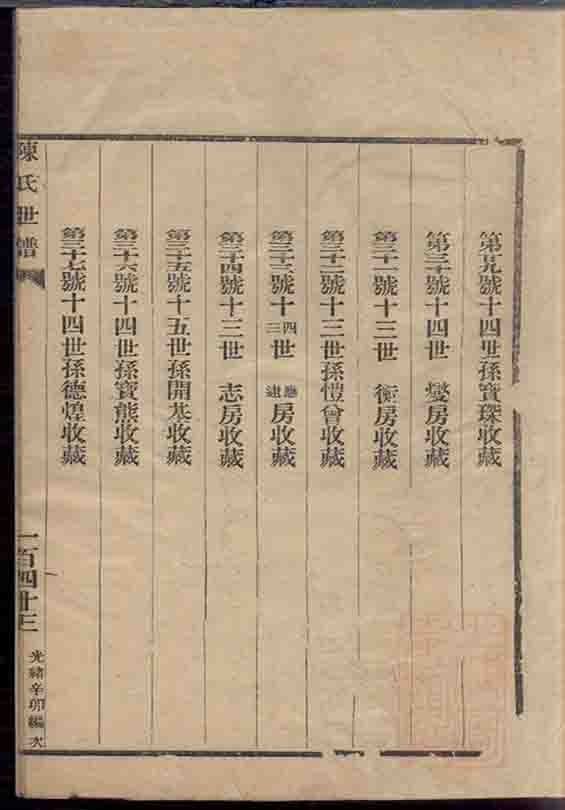 第廿九號十四世孫寶琛收藏
第三十號十四世 燮房收藏
第三十一號十三世 衡房收藏
第三十二號十三世孫愷曾收藏
第三十三號十四三世 房收藏
第三十四號十三世 志房收藏
第三十五號十五世孫開基收藏
第三十六號十四世孫寶熊收藏
第三十七號十四世孫德煌收藏
陳氏世譜
一百四十三
光緒辛卯編次